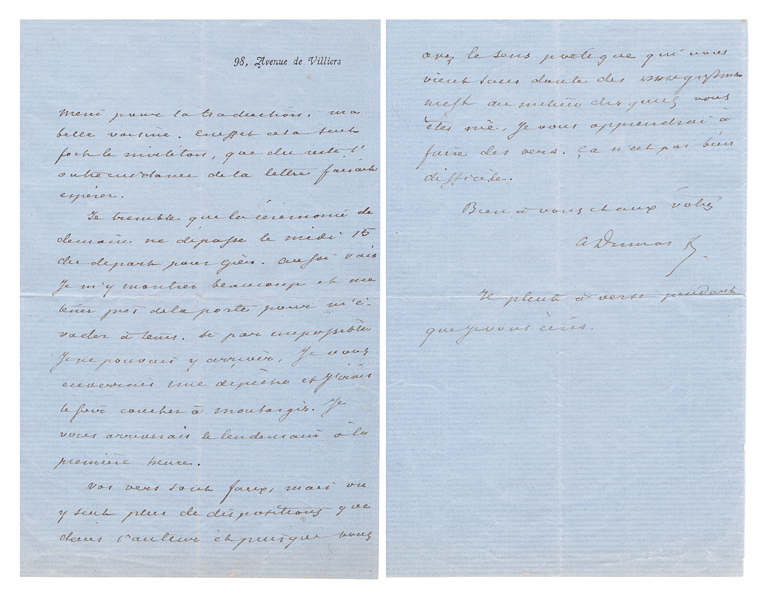 98, Avenue de Villiers
Merci pour la traduction, ma
belle voisine. cela sent
fort le mirliton, que du reste l'
de la lettre faisait
espérer.
Je tremble que la cérémonie de
demain ne dépasse le midi 15
du départ pour Gien. Aussi vais
Je m'y montrer beaucoup et me
tenir près de la porte pour m'é-
vader à tems. Si par impossible
Je ne pouvais y arriver, Je vous
enverrais une dépêche et J'irais
le soir coucher à Montargis. Je
vous arriverais le lendemain à la
première heure.
Vos vers sont faux, mais on
y sent plus de dispositions que
dans l'auteur et puisque vous
avez le sens poétique qui vous
vient sans doute des
au milieu desquels vous
êtes née. Je vous apprendrai à
faire des vers. Ça n'est pas bien
difficile.
Bien à vous et aux vôtres
A Dumas f.
Il pleut à verse pendant
que Je vous écris.